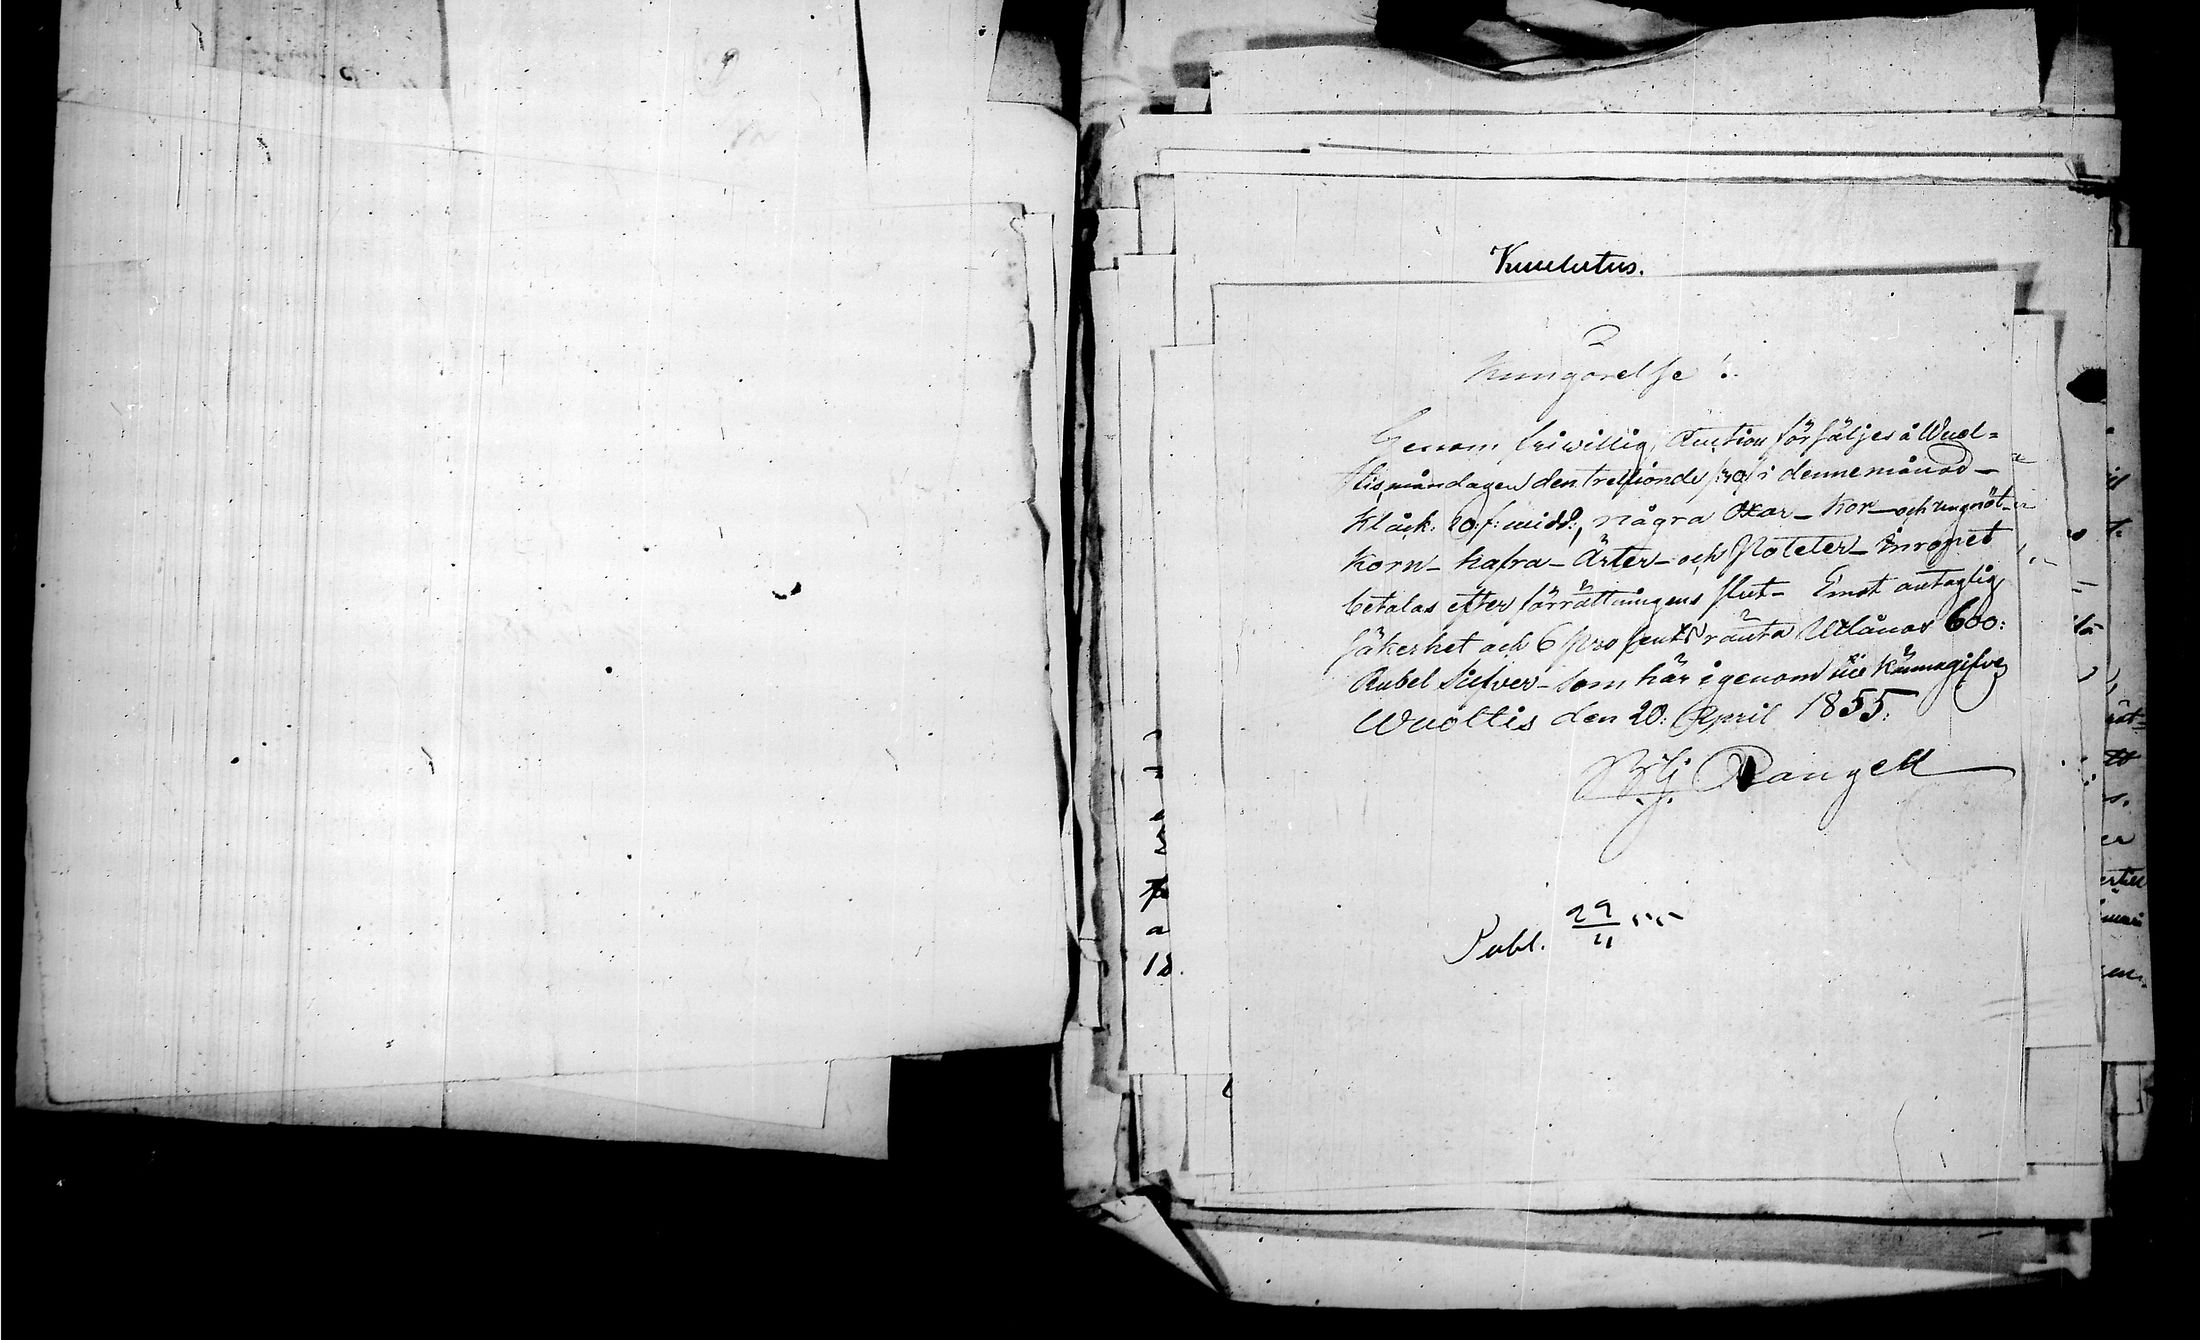 Kuulutus.
Kungörelse!
Genom frivillig Auction försäljes å Wuol=
tis måndagen den trettionde /:30:/ i denne månad —
klåck. 10 f: midd:, några Oxar — Kor — och ungnöt —
Korn — hafra — Ärter — och Poteter — Inropet
betalas efter förrättningens slut — Emot antaglig
säkerhet och 6 pro sents ränta Utlånas 600:
Rubel Silfver — som här igenom til kännagifves
Wuoltis den 20: April 1855:
Rangell
Publ. 22/4 55